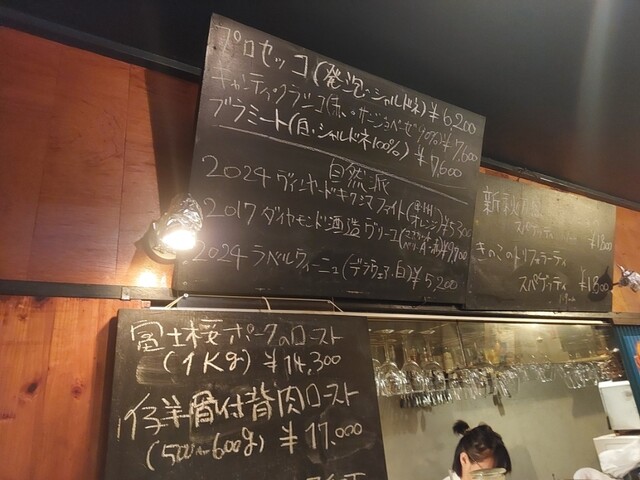 プロセッコ(発泡、シャルドネ)¥6,200
キャンティクラシコ(赤、サンジョベーゼ90%)¥7,600
ブラミート(白、シャルドネ100%)¥7,600
自然派
2024 ヴィンヤードキクシマ ファイト(甲州、オレンジ)¥5,300
2017 ダイヤモンド酒造 ヴリーコ
2024 ラベルヴィーニュ(デラウェア、白)¥5,200
スパゲッティ
¥1,800
きのこのトリフォラーティ
スパゲッティ ¥1,800
富士桜ポークのロースト
(1Kg)¥14,300
仔羊骨付背肉ロースト
(500~600g)¥17,000